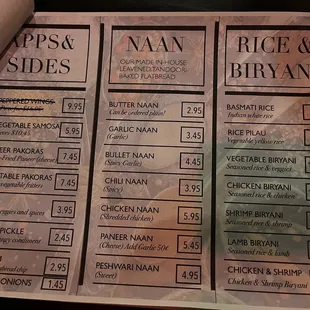 APPS &
SIDES
PEPPERED WINGS
9.95
VEGETABLE SAMOSA
5.95
PAKORAS
7.45
Fried Paneer
PAKORAS
7.45
vegetable fritters
veggies and spices
3.95
PICKLE
2.45
spicy condiment
2.95
bread chip
ONIONS
1.45
NAAN
OUR MADE IN-HOUSE
LEAVENED, TANDOOR-
BAKED FLATBREAD
BUTTER NAAN
2.95
(Can be ordered plain)
GARLIC NAAN
3.45
(Garlic)
BULLET NAAN
4.45
(Spicy Garlic)
CHILI NAAN
3.95
(Spicy)
CHICKEN NAAN
5.95
(Shredded chicken)
PANEER NAAN
5.45
(Cheese) Add Garlic 50¢
PESHWARI NAAN
4.95
(Sweet)
RICE &
BIRYAN
BASMATI RICE
Indian white rice
RICE PILAU
Vegetable yellow rice
VEGETABLE BIRYANI
Seasoned rice & vegetable
CHICKEN BIRYANI
Seasoned rice & chicken
SHRIMP BIRYANI
Seasoned rice &
LAMB BIRYANI
Seasoned rice & lamb
CHICKEN & SHRIMP
Chicken & Shrimp Biryani